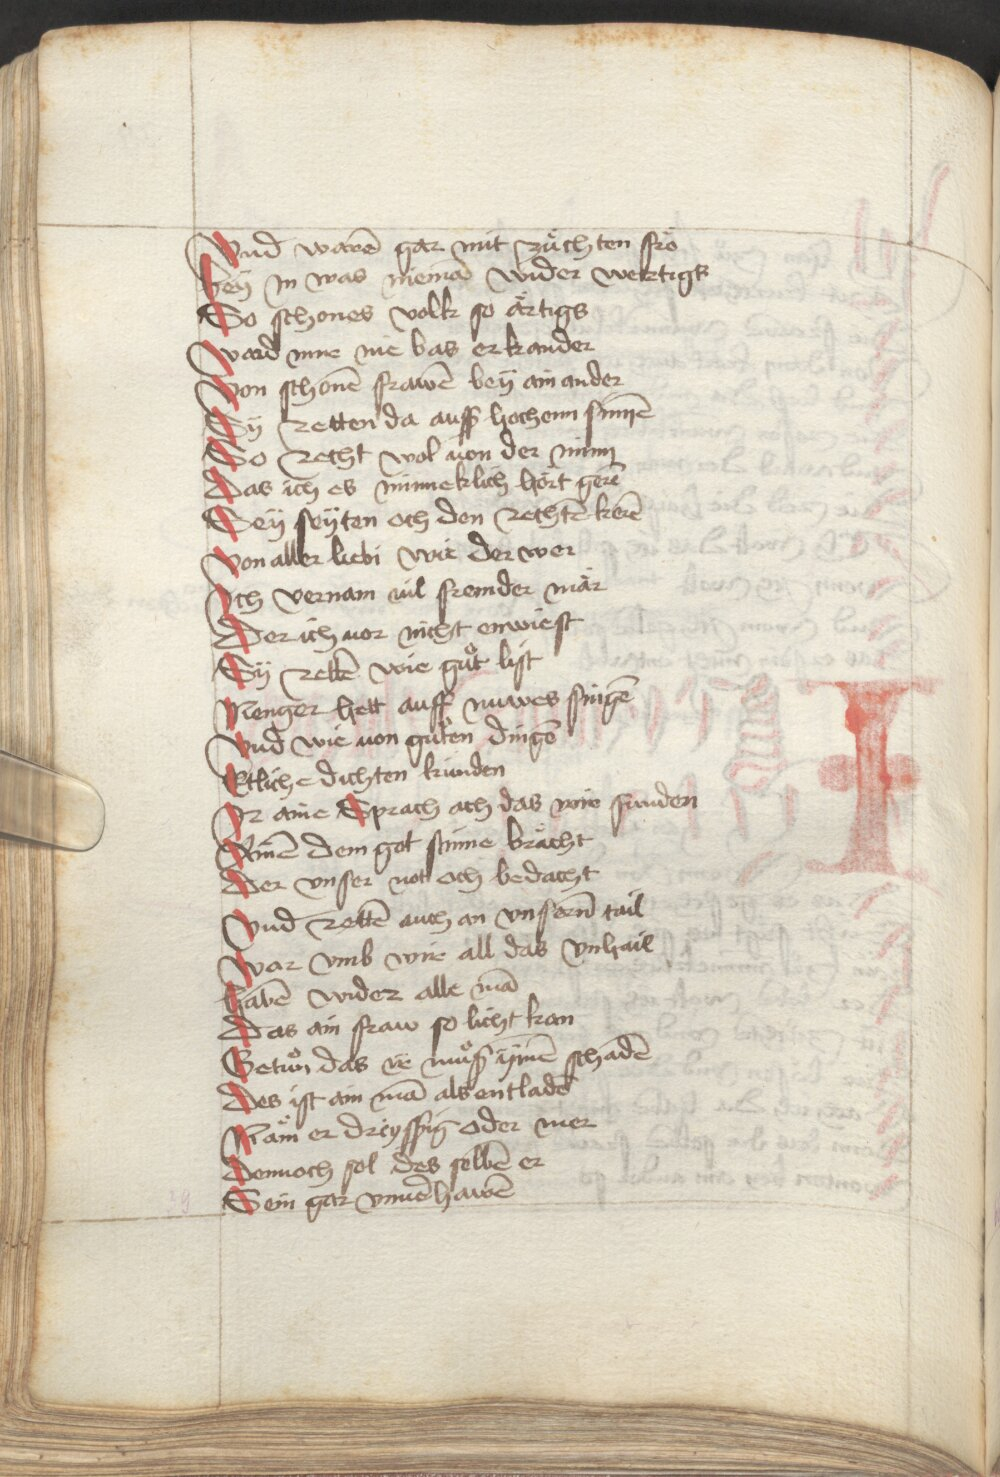 Vnd warē gar mit zu̍chten fro̍
Bey in was niemā wider wertigs
So schones volk so a̍rtigs
Ward mir nie bas erkander
Von schonē frawē bey ain ander
Sy retten da auff hochem sinnē
So recht wol von der minn
Das ich es minneklich hört gerē
Sey seyten och den rechtē kerē
Von aller liebi wie der wer
Ich vernam vil fremder ma̍r
Der ich vor nicht enwiest
Sy rettē wie gůt list
Menger hett auff nuwes singē
Vnd wie von gůten dingē
Ettliche dichten kunden
Ir aine Sprach och das wir funden
Ainē dem got sinne bra̍cht
Der vnser not och bedacht
Vnd rettē auch an vnserm̄ tail
War vmb wir all das vnhail
Habē wider alle mā
Das ain fraw so licht kan
Getůn das ir můß ym̄er schadē
Des ist ain mā als entladē
Na̍m er dreyssig oder mer
Dennoch sol des selbē er
Sein gar vnuerhawē